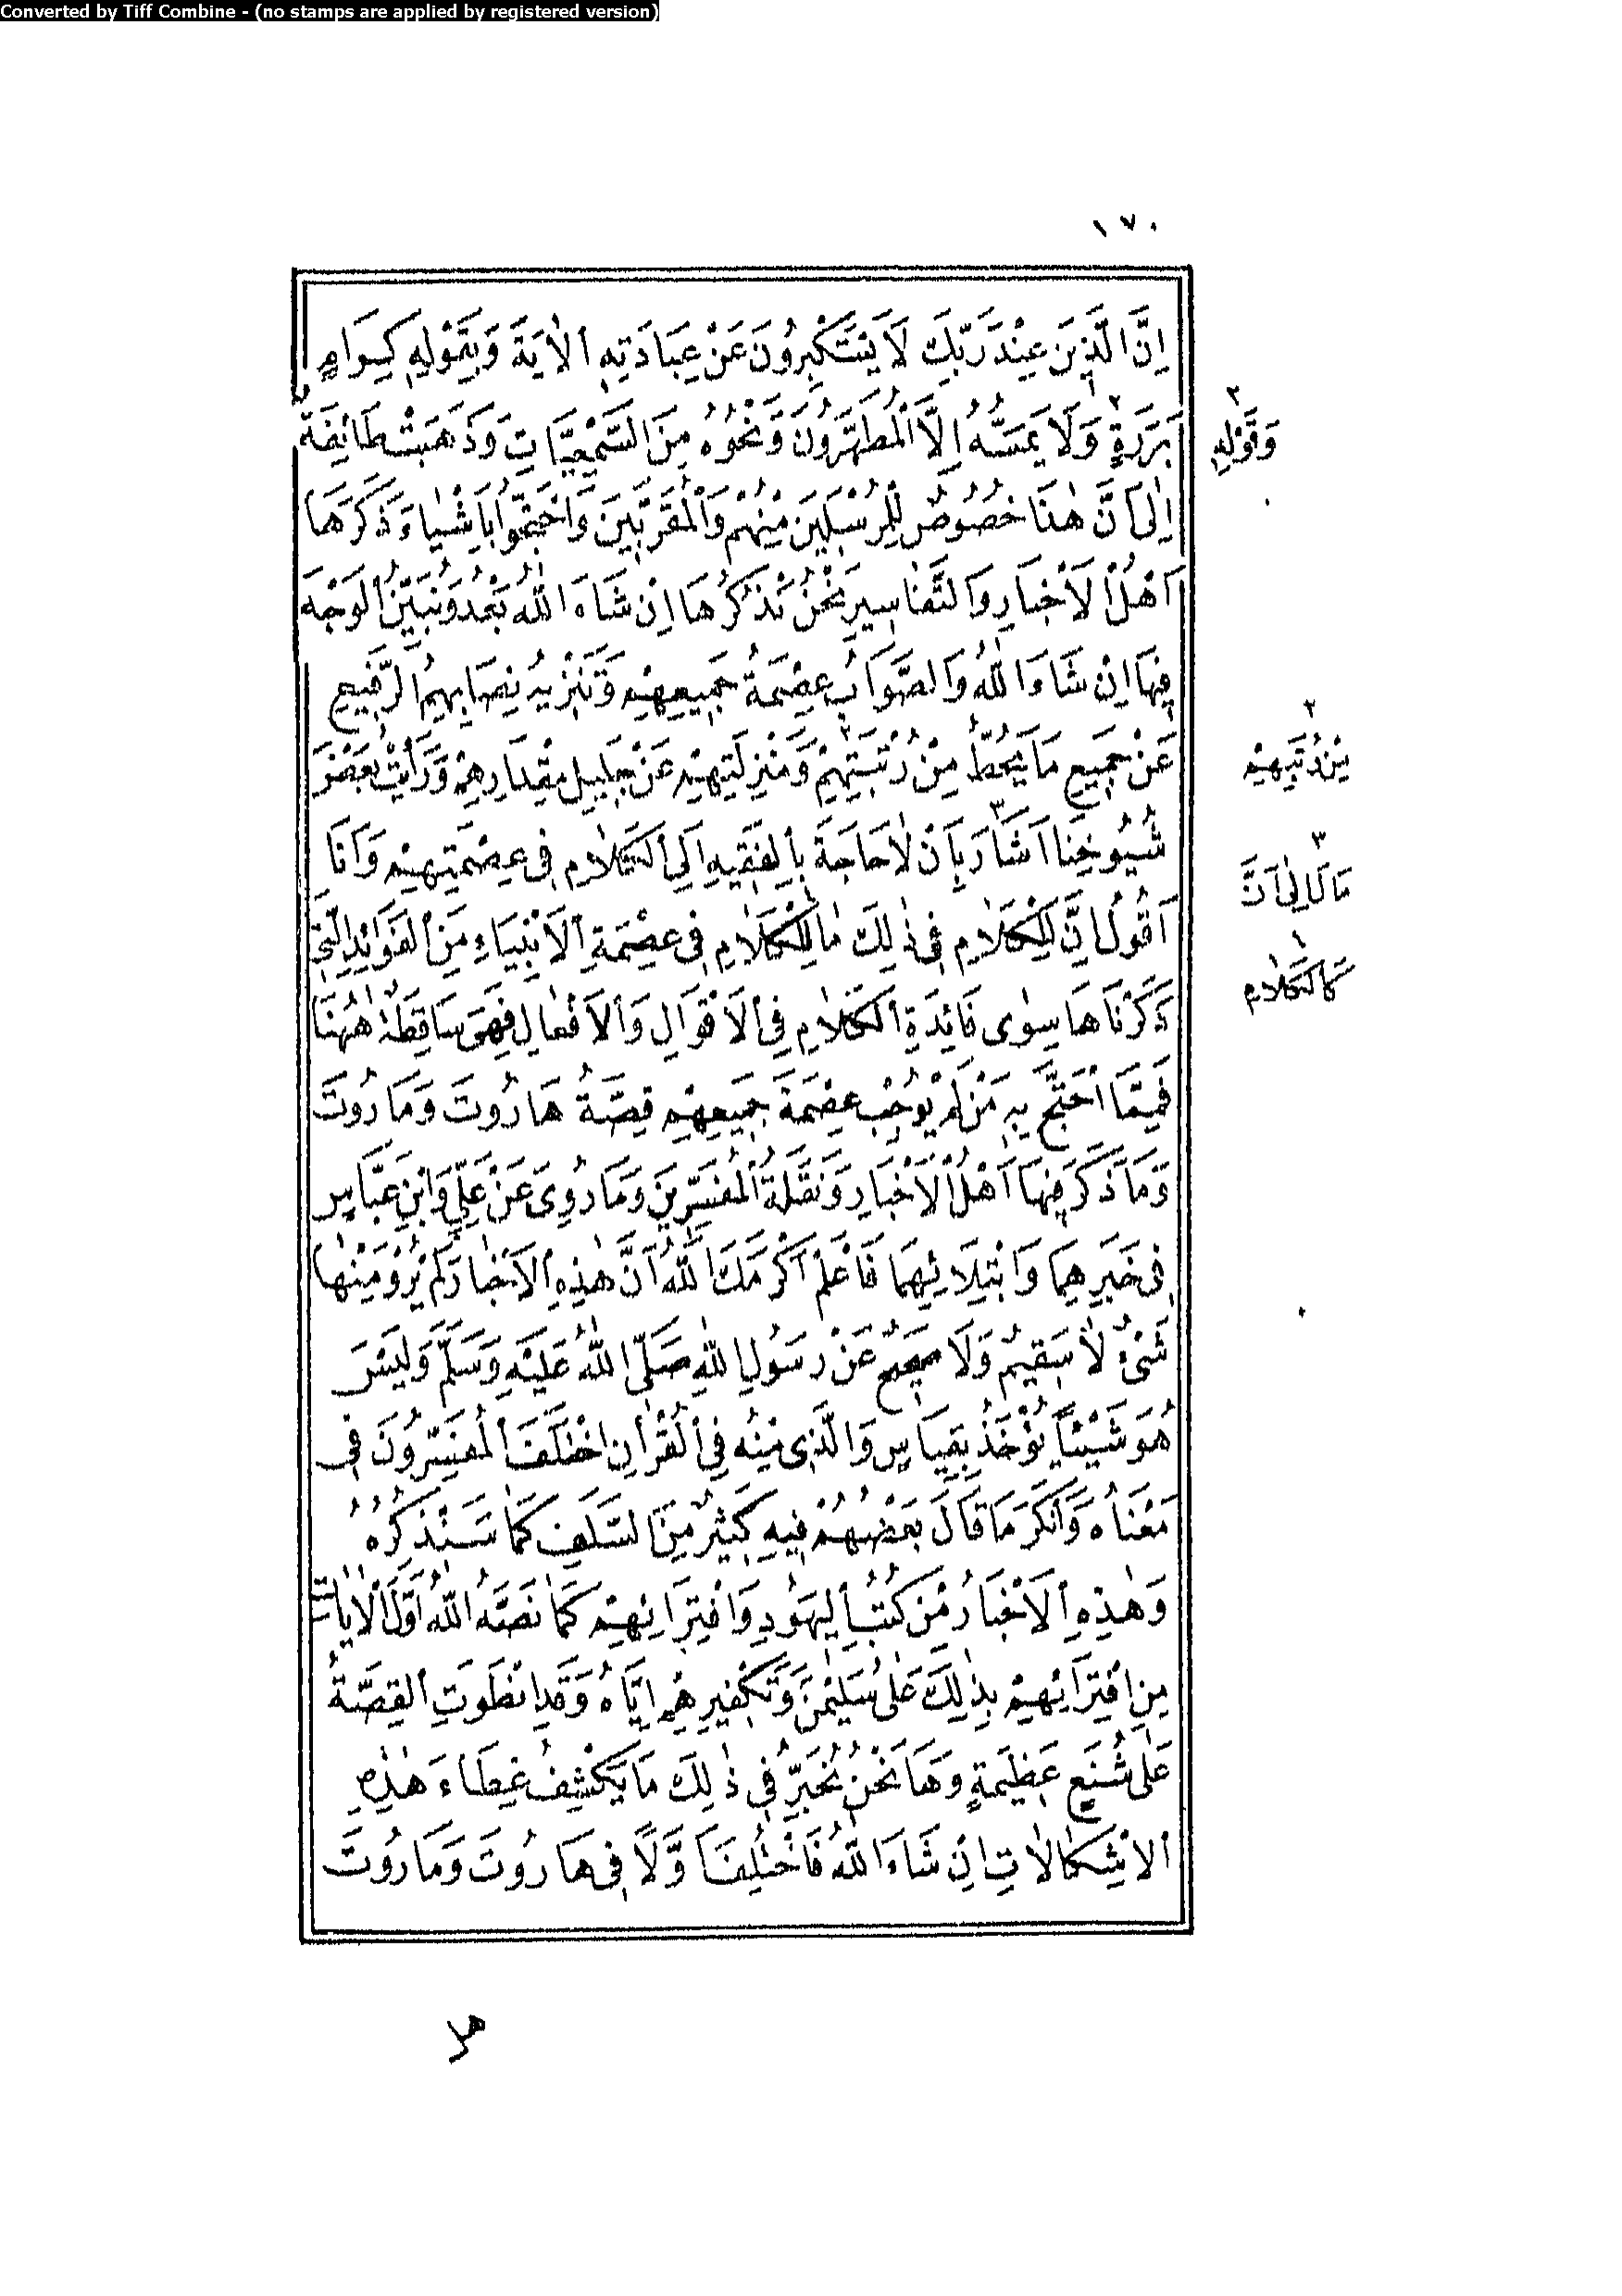 Converted by Tiff Combine - (no stamps are applied by registered version)
١٧٠
اِنَّ الَّذِينَ عِنْدَ رَبِّكَ لَا يَسْتَكْبِرُونَ عَنْ عِبَادَتِهِ اَلْاٰيَةَ وَبِقَوْلِهِ كِرَامٍ
بَرَرَةٍ وَلَا يَمَسُّهُ اِلَّا الْمُطَهَّرُونَ وَنَحْوُهُ مِنَ السَّمْعِيَّاتِ وَذَهَبَتْ طَائِفَةٌ
اِلٰى اَنَّ هٰذَا خُصُوصٌ لِلْمُرْسَلِينَ مِنْهُمْ وَالْمُقَرَّبِينَ وَاحْتَجُّوا بِاَشْيَاءَ ذَكَرَهَا
اَهْلُ الْاَخْبَارِ وَالتَّفَاسِيرِ نَحْنُ نَذْكُرُهَا اِنْ شَاءَ اللّٰهُ بَعْدُ وَنُبَيِّنُ الْوَجْهَ
فِيهَا اِنْ شَاءَ اللّٰهُ وَالصَّوَابُ عِصْمَةُ جَمِيعِهِمْ وَتَنْزِيهُ نِصَابِهِمُ الرَّفِيعِ
عَنْ جَمِيعِ مَا يَحُطُّ مِنْ رُتْبَتِهِمْ وَمَنْزِلَتِهِمْ عَنْ جَلِيلِ مِقْدَارِهِمْ وَرَاَيْتُ بَعْضَ
شُيُوخِنَا اَشَارَ بِاَنْ لَا حَاجَةَ بِالْفَقِيهِ اِلَى الْكَلَامِ فِى عِصْمَتِهِمْ وَاَنَا
اَقُولُ اِنَّ لِلْكَلَامِ فِى ذٰلِكَ مَا لِلْكَلَامِ فِى عِصْمَةِ الْاَنْبِيَاءِ مِنَ الْفَوَائِدِ الَّتِى
ذَكَرْنَاهَا سِوٰى فَائِدَةِ الْكَلَامِ فِى الْاَقْوَالِ وَالْاَفْعَالِ فَهِىَ سَاقِطَةٌ هٰهُنَا
فَمِمَّا احْتَجَّ بِهِ مَنْ لَمْ يُوجِبْ عِصْمَةَ جَمِيعِهِمْ قِصَّةُ هَارُوتَ وَمَارُوتَ
وَمَا ذَكَرَ فِيهَا اَهْلُ الْاَخْبَارِ وَنَقَلَةُ الْمُفَسِّرِينَ وَمَا رُوِىَ عَنْ عَلِىٍّ وَابْنِ عَبَّاسٍ
فِى خَبَرِهِمَا وَابْتِلَائِهِمَا فَاعْلَمْ اَكْرَمَكَ اللّٰهُ اَنَّ هٰذِهِ الْاَخْبَارَ لَمْ يُرْوَ مِنْهَا
شَىْءٌ لَا سَقِيمٌ وَلَا صَحِيحٌ عَنْ رَسُولِ اللّٰهِ صَلَّى اللّٰهُ عَلَيْهِ وَسَلَّمَ وَلَيْسَ
هُوَ شَيْئًا يُؤْخَذُ بِقِيَاسٍ وَالَّذِى مِنْهُ فِى الْقُرْاٰنِ اخْتَلَفَ الْمُفَسِّرُونَ فِى
مَعْنَاهُ وَاَنْكَرَ مَا قَالَ بَعْضُهُمْ فِيهِ كَثِيرٌ مِنَ السَّلَفِ كَمَا سَنَذْكُرُهُ
وَهٰذِهِ الْاَخْبَارُ مِنْ كُتُبِ الْيَهُودِ وَافْتِرَائِهِمْ كَمَا نَصَّهُ اللّٰهُ اَوَّلَ الْاٰيَاتِ
مِنِ افْتِرَائِهِمْ بِذٰلِكَ عَلٰى سُلَيْمٰنَ وَتَكْفِيرِهِمْ اِيَّاهُ وَقَدِ انْطَوَتِ الْقِصَّةُ
عَلٰى شُنَعٍ عَظِيمَةٍ وَهَا نَحْنُ نُحَبِّرُ فِى ذٰلِكَ مَا يَكْشِفُ غِطَاءَ هٰذِهِ
الْاِشْكَالَاتِ اِنْ شَاءَ اللّٰهُ فَاخْتُلِفَ اَوَّلًا فِى هَارُوتَ وَمَارُوتَ
٢
وَقَوْلِهِ
٢
مِنْ رُتَبِهِمْ
٣
مَالَ اِلٰى اَنَّ
١
كَالْكَلَامِ
هل